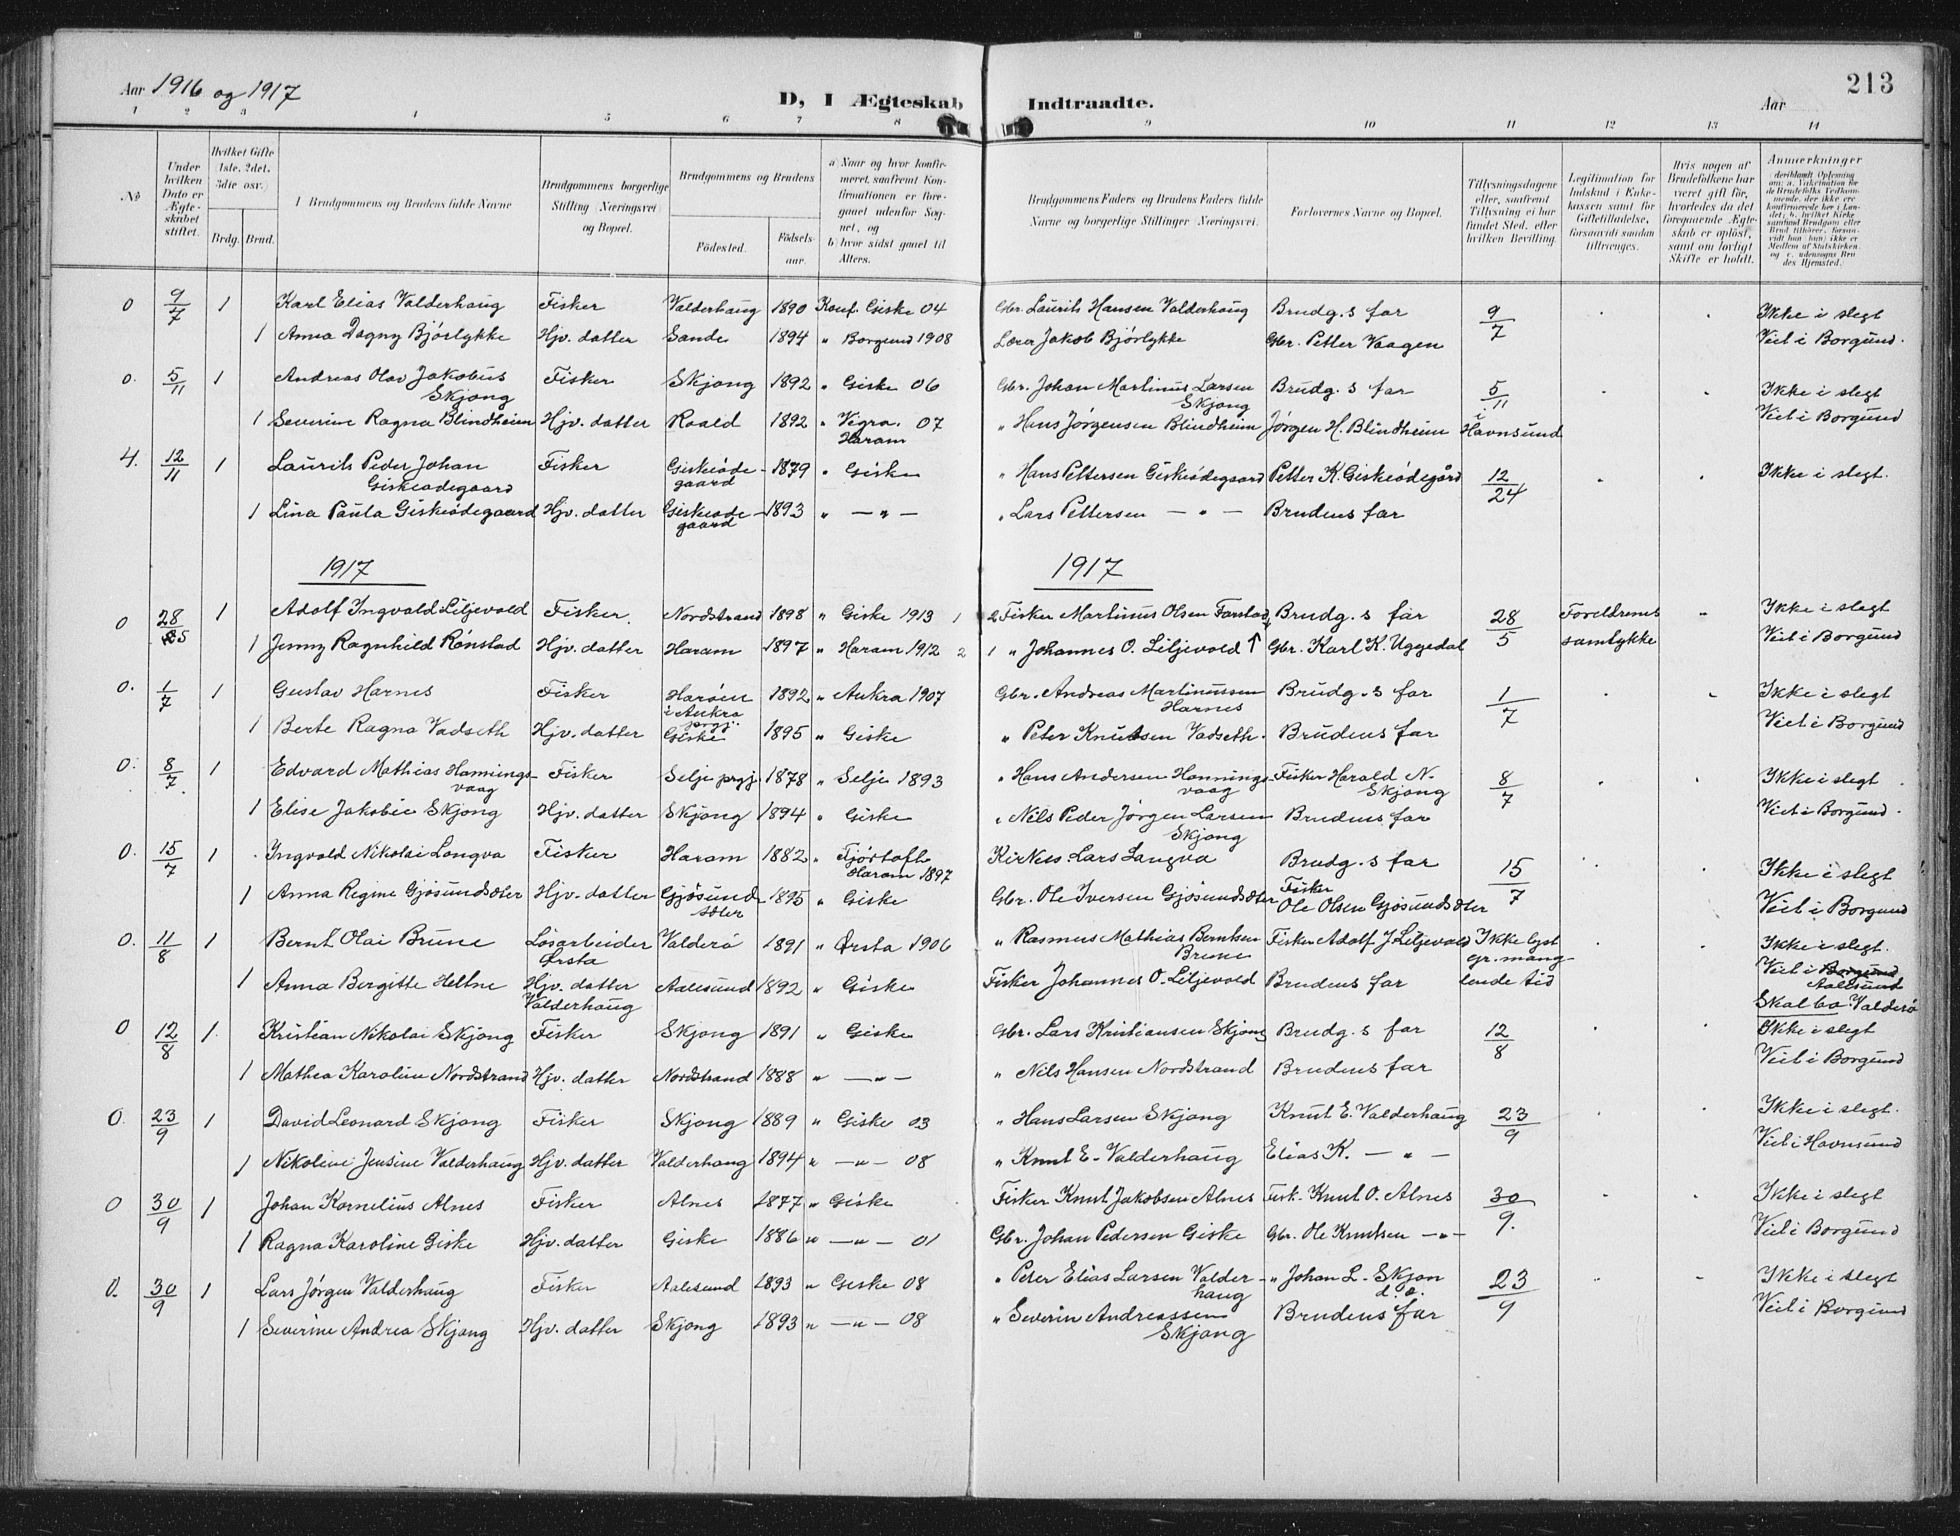 Aar 1916 og 1917
D, I Ægteskab Indtraadte.
Aar 213
1 2 3 4 5 6 7 8 9 10 11 12 13 14
No
Under hvilken Dato er Ægteskabet stiftet.
Hvilket Gifte 1ste, 2det, 3die osr.)
Brdg. Brud.
I Brudgommens og Brudens fulde Navne
Brudgommens borgerlige Stilling (Næringsvei) og Bopæl.
Brudgommens og Brudens
Födested.
Födselsaar.
a) Naar og hvor konfirmeret, saafremt Konfirmationen er foregaaet udenfor Sognet, og
b) hvor sidst gaaet til Alters.
Brudgommens Faders og Brudens Faders fulde Navne og borgerlige Stillinger (Næringsvei.
Forlovernes Navne og Bopæl.
Tillysningsdagene eller, saafremt Tillysning ei har fundet Sted, efter hvilken Bevilling.
Legitimation for Indskud i Enkekassen samt for Giftetilladelse, forsaavidt saadan tiltrænges.
Hvis nogen af Brudefolkene har været gift för, hvorledes da det foregaaende Ægteskab er oplöst, samt om lovligt Skifte er holdt.
Anmerkninger
0 9/7 1 Karl Elias Valderhaug Fisker Valderhaug 1890 Konf. Giske 04 Gbr. Laurits Hansen Valderhaug Brudg.s far 9/7 Ikke i slegt
1 Anna Dagny Bjørlykke Hjv. datter Sande 1894 " Borgund 1908 Lærer Jakob Bjørlykke Gbr. Petter Vaagen Viet i Borgund.
0. 5/11 1 Andreas Olav Jakobus Skjong Fisker Skjong 1892 " Giske 06 Gbr. Johan Martinus Larsen Skjong Brudg.s far 5/11 Ikke i slegt
1 Severine Ragna Blindheim Hjv. datter Roald 1892 " Vigra. 07 Haram " Hans Jørgensen Blindheim Jørgen H. Blindheim i Havnsund Viet i Borgund
4. 12/11 1 Laurits Peder Johan Giskeødegaard Fisker Giskeødegaard 1879 " Giske " Hans Pettersen Giskeødegaard Petter K. Giskeødegård 12/24 Ikke i slegt.
1 Lina Paula Giskeødegaard Hjv. datter Giskeødegaard 1893 " — " — " Lars Pettersen — " — Brudens far
1917 1917
0 28/5 1 Adolf Ingvald Liljevold Fisker. Nordstrand 1898 " Giske 1913 1 2 Fisker Martinus Olsen Farstad Brudg.s far 28/5 Foreldrenes Ikke i slegt
1 Jenny Ragnhild Rønstad Hjv. datter Haram 1897 " Haram 1912 2 1 " Johannes O. Liljevold ↑ Gbr. Karl K. Uggedal samtykke Viet i Borgund
0. 1/7 1 Gustav Harnes Fisker Harøen i Aukra prgj. 1892 " Aukra 1907 Gbr. Andreas Martinussen Harnes Brudg.s far 1/7 Ikke i slegt
1 Berte Ragna Vadseth Hjv. datter Giske 1895 " Giske " Peter Knutsen Vadseth. Brudens far Viet i Borgund
0. 8/7 1 Edvard Mathias Hanningsvaag Fisker Selje prgj. 1878 " Selje 1893 " Hans Andersen Honningsvaag Fisker Harald N. Skjong 8/7 Ikke i slegt
1 Elise Jakobie Skjong Hjv. datter Skjong 1894 " Giske " Nils Peder Jørgen Larsen Skjong Brudens far Viet i Borgund.
0. 15/7 1 Ingvald Nikolai Longva Fisker Haram 1882 " Fjørtoft Haram 1897 Lars Longva Brudg.s far 15/7 Ikke i slegt
1 Anna Regine Gjøsundsæter Hjv. datter Gjøsundsæter 1895 " Giske Gbr. Ole Iversen Gjøsundsæter Fisker Ole Olsen Gjøsundsæter Viet i Borgund
0. 11/8 1 Bernt Olai Brune Løsarbeider Ørsta Valderø 1891 " Ørsta 1906 " Rasmus Mathias Berntsen Brune Fisker Adolf J Liljevold Ikke lyst gr. mang- Ikke i slegt.
1 Anna Bergitte Heltne Hjv. datter Valderhaug Aalesund 1892 " Giske Fisker Johannes O. Liljevold Brudens far lende tid Viet i Borgund Aalesund
Skal bo. Valderø
0 12/8 1. Kristian Nikolai Skjong Fisker Skjong 1891 " Giske Gbr. Lars Kristiansen Skjong Brudg.s far 12/8 Ikke i slegt
1 Mathea Karoline Nordstrand Hjv. datter Nordstrand 1888 " — " — " Nils Hansen Nordstrand Brudens far Viet i Borgund
0. 23/9 1 David Leonard Skjong Fisker Skjong 1889 " Giske 03 " Hans Larsen Skjong Knut E. Valderhaug 23/9 Ikke i slegt.
1 Nikoline Jensine Valderhaug Hjv. datter Valderhaug 1894 " — " — 08 " Knut E. Valderhaug Elias K. — " — Viet i Havnsund
0 30/9 1 Johan Kornelius Alnes Fisker Alnes 1877 " Giske Fisker Knut Jakobsen Alnes Fisk. Knut O. Alnes 30/9. Ikke i slegt
1 Ragna Karoline Giske Hjv. datter Giske 1886 " — " — 01 Gbr. Johan Pedersen Giske Gbr. Ole Knutsen — " — Viet i Borgund
0. 30/9 1 Lars Jørgen Valderhaug Fisker Aalesund 1893 " Giske 08 " Peter Elias Larsen Valderhaug " Johan L. Skjon d.o. 23/9 Ikke i slegt
1 Severine Andrea Skjong Hjv. datter Skjong 1893 " — " — 08 " Severin Andreassen Skjong Brudens far Viet i Borgund